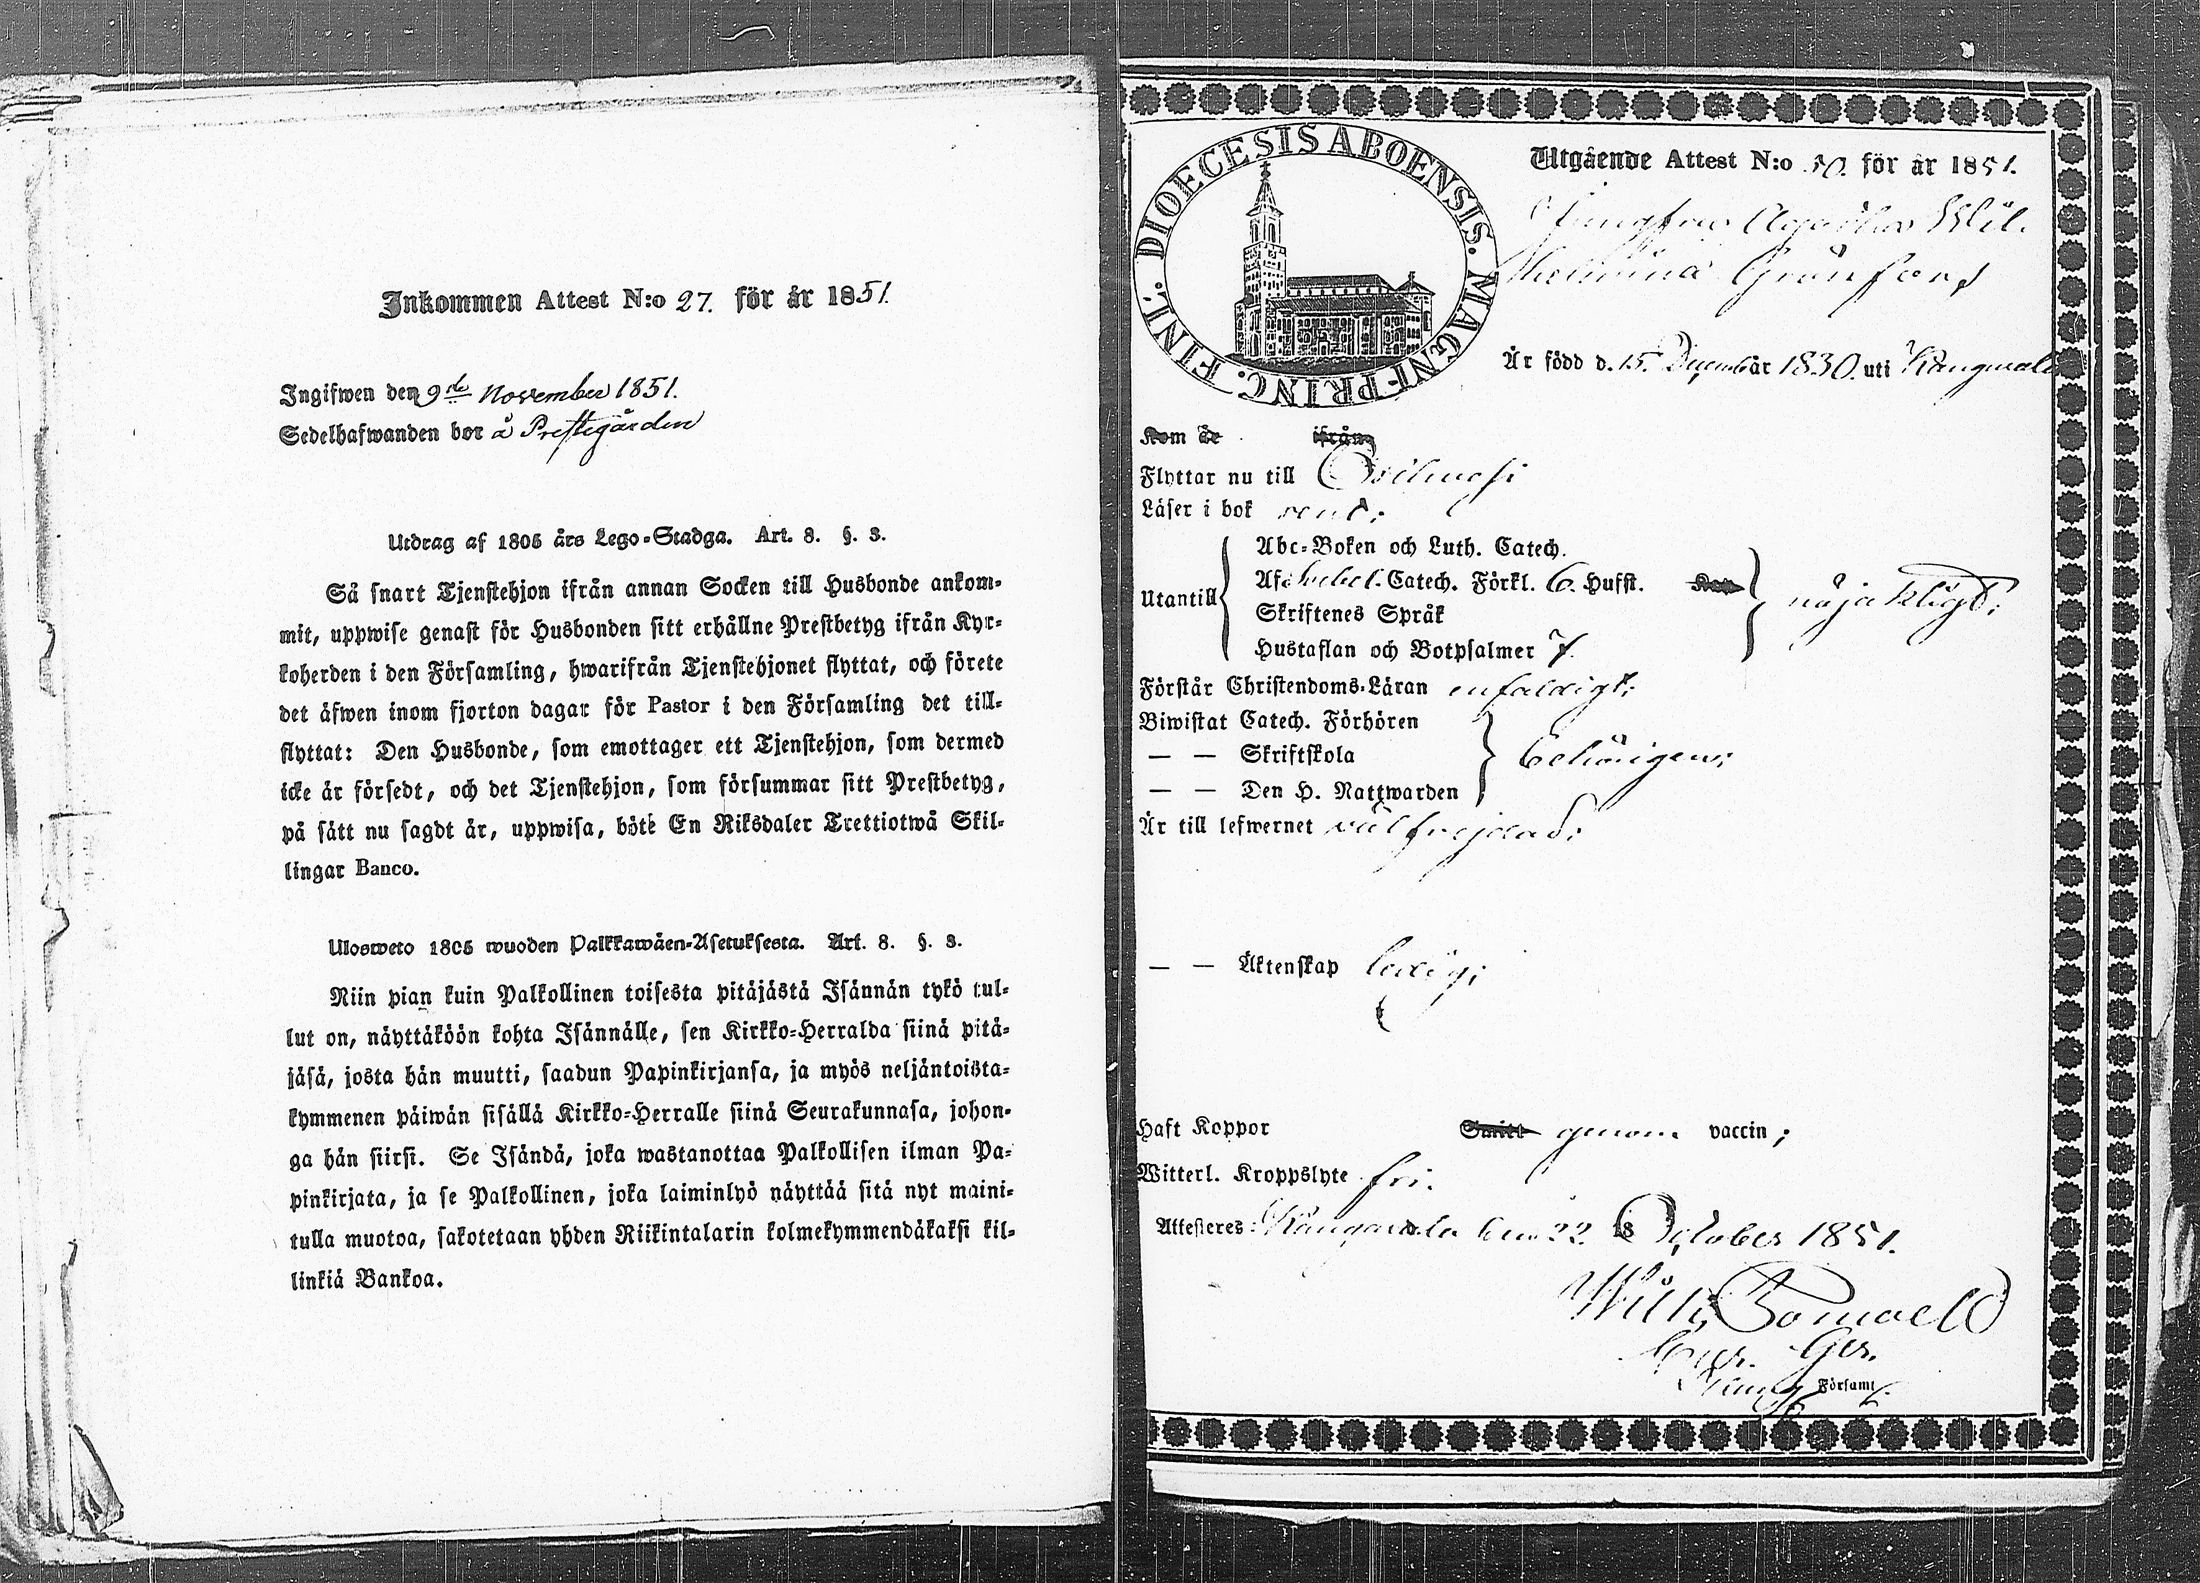 Inkommen Attest N:o 27. för år 1851.
Ingifwen den 9de November 1851.
Sedelhafwanden bor å Prestegården
Utdrag af 1805 års Lego-Stadga. Art. 8. §. 3.
Så snart Tjenstehjon ifrån annan Socken till Husbonde ankom-
mit, uppwise genast för Husbonden sitt erhållne Prestbetyg ifrån Kyr-
koherden i den Församling, hwarifrån Tjenstehjonet flyttat, och förete
det äfwen inom fjorton dagar för Pastor i den Församling det till-
flyttat: Den Husbonde, som emottager ett Tjenstehjon, som dermed
icke är försedt, och det Tjenstehjon, som försummar sitt Prestbetyg,
på sätt nu sagdt är, uppwisa, böte En Riksdaler Trettiotwå Skil-
lingar Banco.
Ulosweto 1805 wuoden Palkkawäen-Asetuksesta. Art. 8. §. 3.
Niin pian kuin Palkollinen toisesta pitäjästä Isännän tykö tul-
lut on, näyttäköön kohta Isännälle, sen Kirkko-Herralda siinä pitä-
jäsä, josta hän muutti, saadun Papinkirjansa, ja myös neljäntoista-
kymmenen päiwän sisällä Kirkko-Herralle siinä Seurakunnasa, johon-
ga hän siirsi. Se Isändä, joka wastanottaa Palkollisen ilman Pa-
pinkirjata, ja se Palkollinen, joka laiminlyö näyttää sitä nyt maini-
tulla muotoa, sakotetaan yhden Riikintalarin kolmekymmendäkaksi kil-
linkiä Bankoa.
DIOECESIS ABOENSIS. MAGNI PRINC. FINL.
Utgående Attest N:o 50. för år 1851.
Jungfrun Agatha Wil-
helmina Grönfors
Är född d. 15 December år 1830. uti Kangasala
Kom år ifrån
Flyttar nu till
Läser i bok rent;
Abc-Boken och Luth. Catech.
Utantill Af Svebel. Catech. Förkl. 6. Hufst. Kap.
Skriftenes Språk nöjaktigt;
Hustaflan och Botpsalmer 7.
Förstår Christendoms-Läran enfaldigt;
Biwistat Catech. Förhören
— — Skriftskola behörigen;
— — Den H. Nattwarden
Är till lefwernet välfrejdad;
— — Äktenskap ledig;
Haft Koppor Smitt genom vaccin;
Witterl. Kroppslyte fri.
Attesteres: Kangasala den 22. 18 October 1851.
Wilh.
Församl.